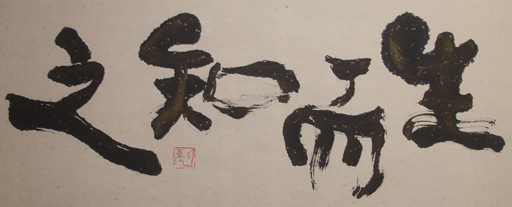 生而知之